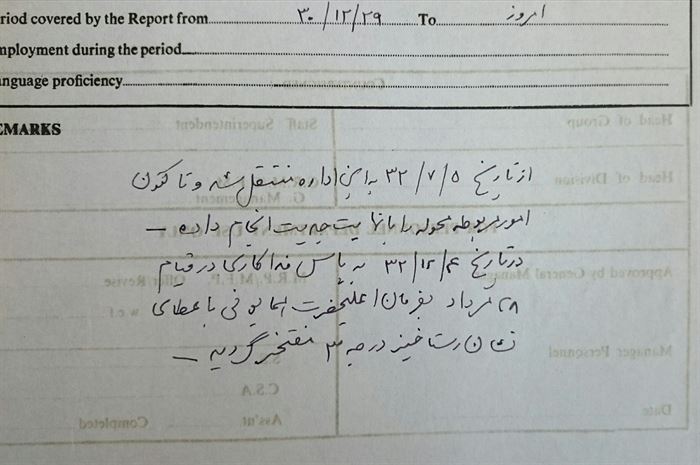 riod covered by the Report from ۳۰/۱۲/۲۹ To امروز
mployment during the period
nguage proficiency
EMARKS
از تاریخ ۳۲/۷/۵ به این اداره منتقل شده و تا کنون
امور مربوطه محوله را با نهایت جدیت انجام داده –
در تاریخ ۳۲/۱۲/۴ به پاس فداکاری در قیام
۲۸ مرداد بفرمان اعلیحضرت همایونی با عطای
نشان رستاخیز درجه ۳ مفتخر گردید –
Head of Group
Staff Superintendent
Head of Division
G. Management
Approved by General Manager
M.R.P./M.E.P.
w.e.f.
Manager Personnel
C.S.A
Date
Ass'nt
Completed